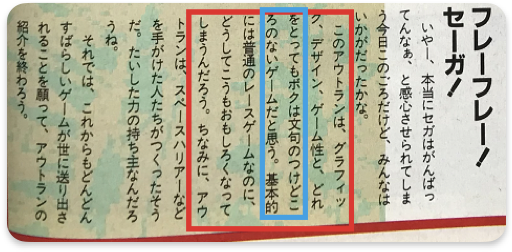 フレーフレー!
セーガ!
いやー、本当にセガはがんばっ
てんなぁ、と感心させられてしま
う今日このごろだけど、みんなは
いかがだったかな。
このアウトランは、グラフィッ
ク、デザイン、ゲーム性と、どれ
をとってもボクは文句のつけどこ
ろのないゲームだと思う。基本的
には普通のレースゲームなのに、
どうしてこうもおもしろくなって
しまうんだろう。ちなみに、アウ
トランは、スペースハリアーなど
を手がけた人たちがつくったそう
だ。たいした力の持ち主なんだろ
うね。
それでは、これからもどんどん
すばらしいゲームが世に送り出さ
れることを願って、アウトランの
紹介を終わろう。